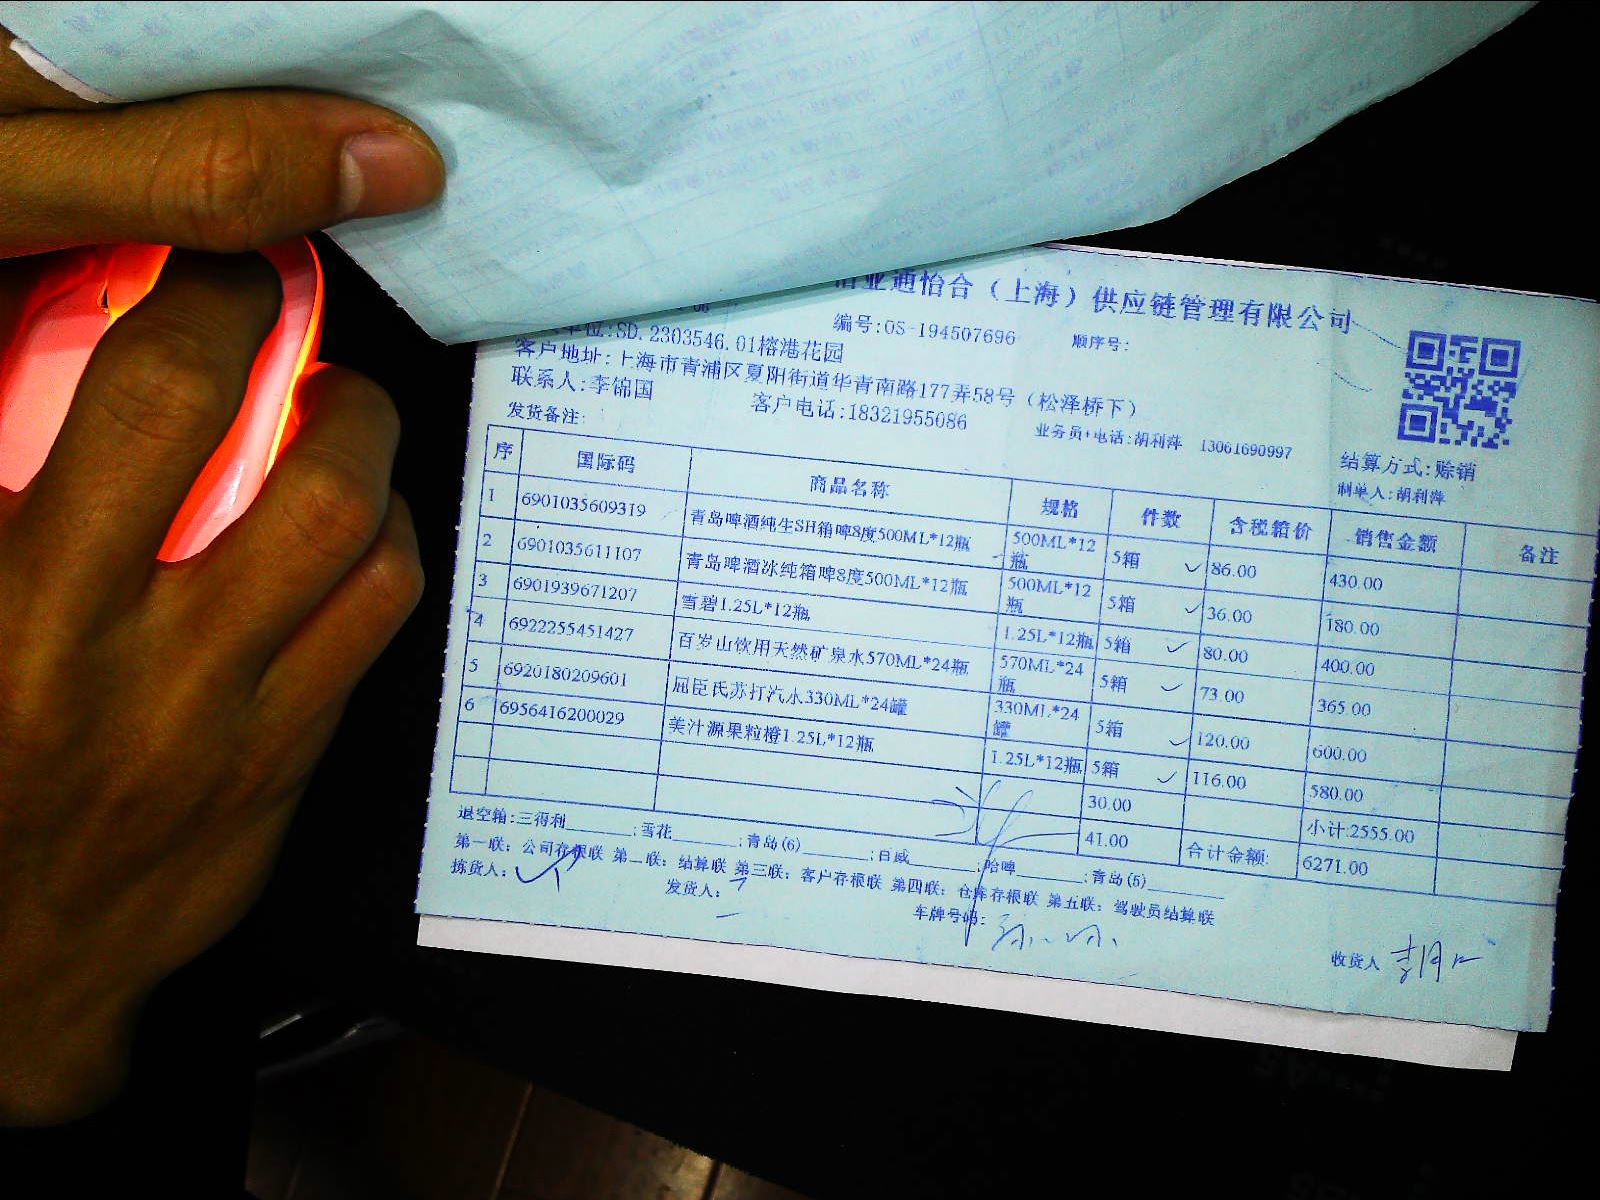 业通怡合（上海）供应链管理有限公司
编号:OS-194507696 顺序号:
单位:SD.2303546.01榕港花园
客户地址:上海市青浦区夏阳街道华青南路177弄58号（松泽桥下）
联系人:李锦国 客户电话:18321955086 业务员+电话:胡利萍 13061690997
发货备注:
结算方式:赊销
制单人:胡利萍
序 国际码 商品名称 规格 件数 含税箱价 销售金额 备注
1 6901035609319 青岛啤酒纯生SH箱啤8度500ML*12瓶 500ML*12瓶 5箱 86.00 430.00
2 6901035611107 青岛啤酒冰纯箱啤8度500ML*12瓶 500ML*12瓶 5箱 36.00 180.00
3 6901939671207 雪碧1.25L*12瓶 1.25L*12瓶 5箱 80.00 400.00
4 6922255451427 百岁山饮用天然矿泉水570ML*24瓶 570ML*24瓶 5箱 73.00 365.00
5 6920180209601 屈臣氏苏打汽水330ML*24罐 330ML*24罐 5箱 120.00 600.00
6 6956416200029 美汁源果粒橙1.25L*12瓶 1.25L*12瓶 5箱 116.00 580.00
30.00 小计:2555.00
41.00 合计金额: 6271.00
退空箱:三得利______;雪花______;青岛(6)______;百威______;哈啤______;青岛(5)______
第一联：公司存根联 第二联：结算联 第三联：客户存根联 第四联：仓库存根联 第五联：驾驶员结算联
拣货人： 发货人： 车牌号码： 收货人